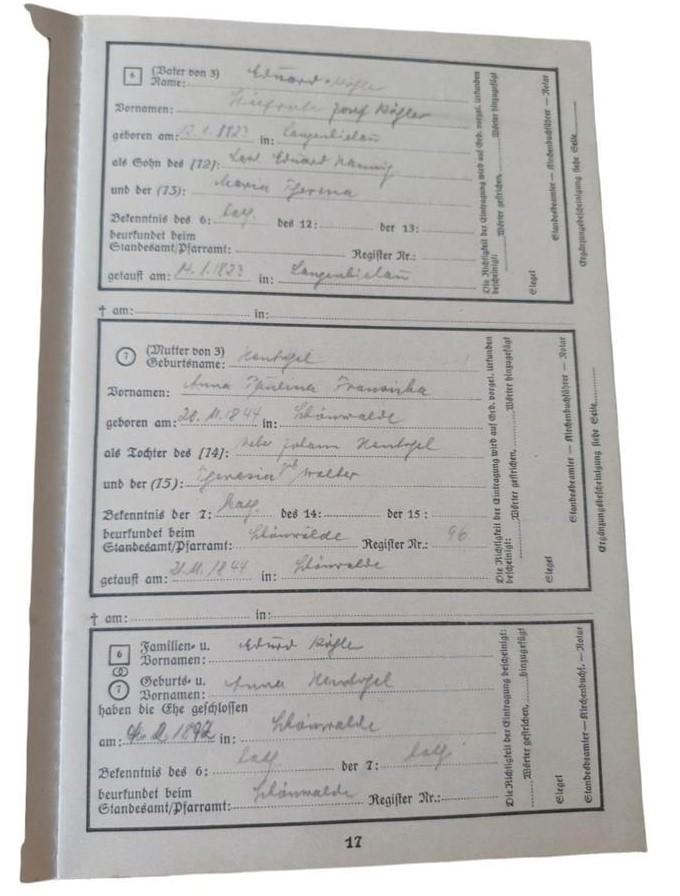 6 (Vater von 3)
Name: Eduard Kögler
Vornamen: Josef Kögler
geboren am: 1823 in: Langenbielau
als Sohn des (12): Eduard
und der (13): Maria Theresia
Bekenntnis des 6: kath. des 12: der 13:
beurkundet beim
Standesamt/Pfarramt: Register Nr.:
getauft am: 14.1.1823 in: Langenbielau
† am: in:
7 (Mutter von 3)
Geburtsname:
Vornamen: Anna Paulina Franziska
geboren am: 20.11.1844 in: Schönwalde
als Tochter des (14): Johann
und der (15): Theresia geb. Walter
Bekenntnis der 7: kath. des 14: der 15:
beurkundet beim
Standesamt/Pfarramt: Schönwalde Register Nr.: 96
getauft am: 21.11.1844 in: Schönwalde
† am: in:
6 Familien- u. Vornamen: Eduard Kögler
7 Geburts- u. Vornamen: Anna
haben die Ehe geschlossen
am: in: Schönwalde
Bekenntnis des 6: kath der 7: kath
beurkundet beim
Standesamt/Pfarramt: Schönwalde Register Nr.:
Die Richtigkeit der Eintragung wird auf Grd. vorgel. Urkunden
bescheinigt: Wörter gestrichen, Wörter hinzugefügt
Siegel Standesbeamter – Kirchenbuchführer – Notar
Ergänzungsbescheinigung siehe Seite
Die Richtigkeit der Eintragung wird auf Grd. vorgel. Urkunden
bescheinigt: Wörter gestrichen, Wörter hinzugefügt
Siegel Standesbeamter – Kirchenbuchführer – Notar
Ergänzungsbescheinigung siehe Seite
Die Richtigkeit der Eintragung bescheinigt:
Wörter gestrichen, hinzugefügt
Siegel
Standesbeamter – Kirchenbuchf. – Notar
17